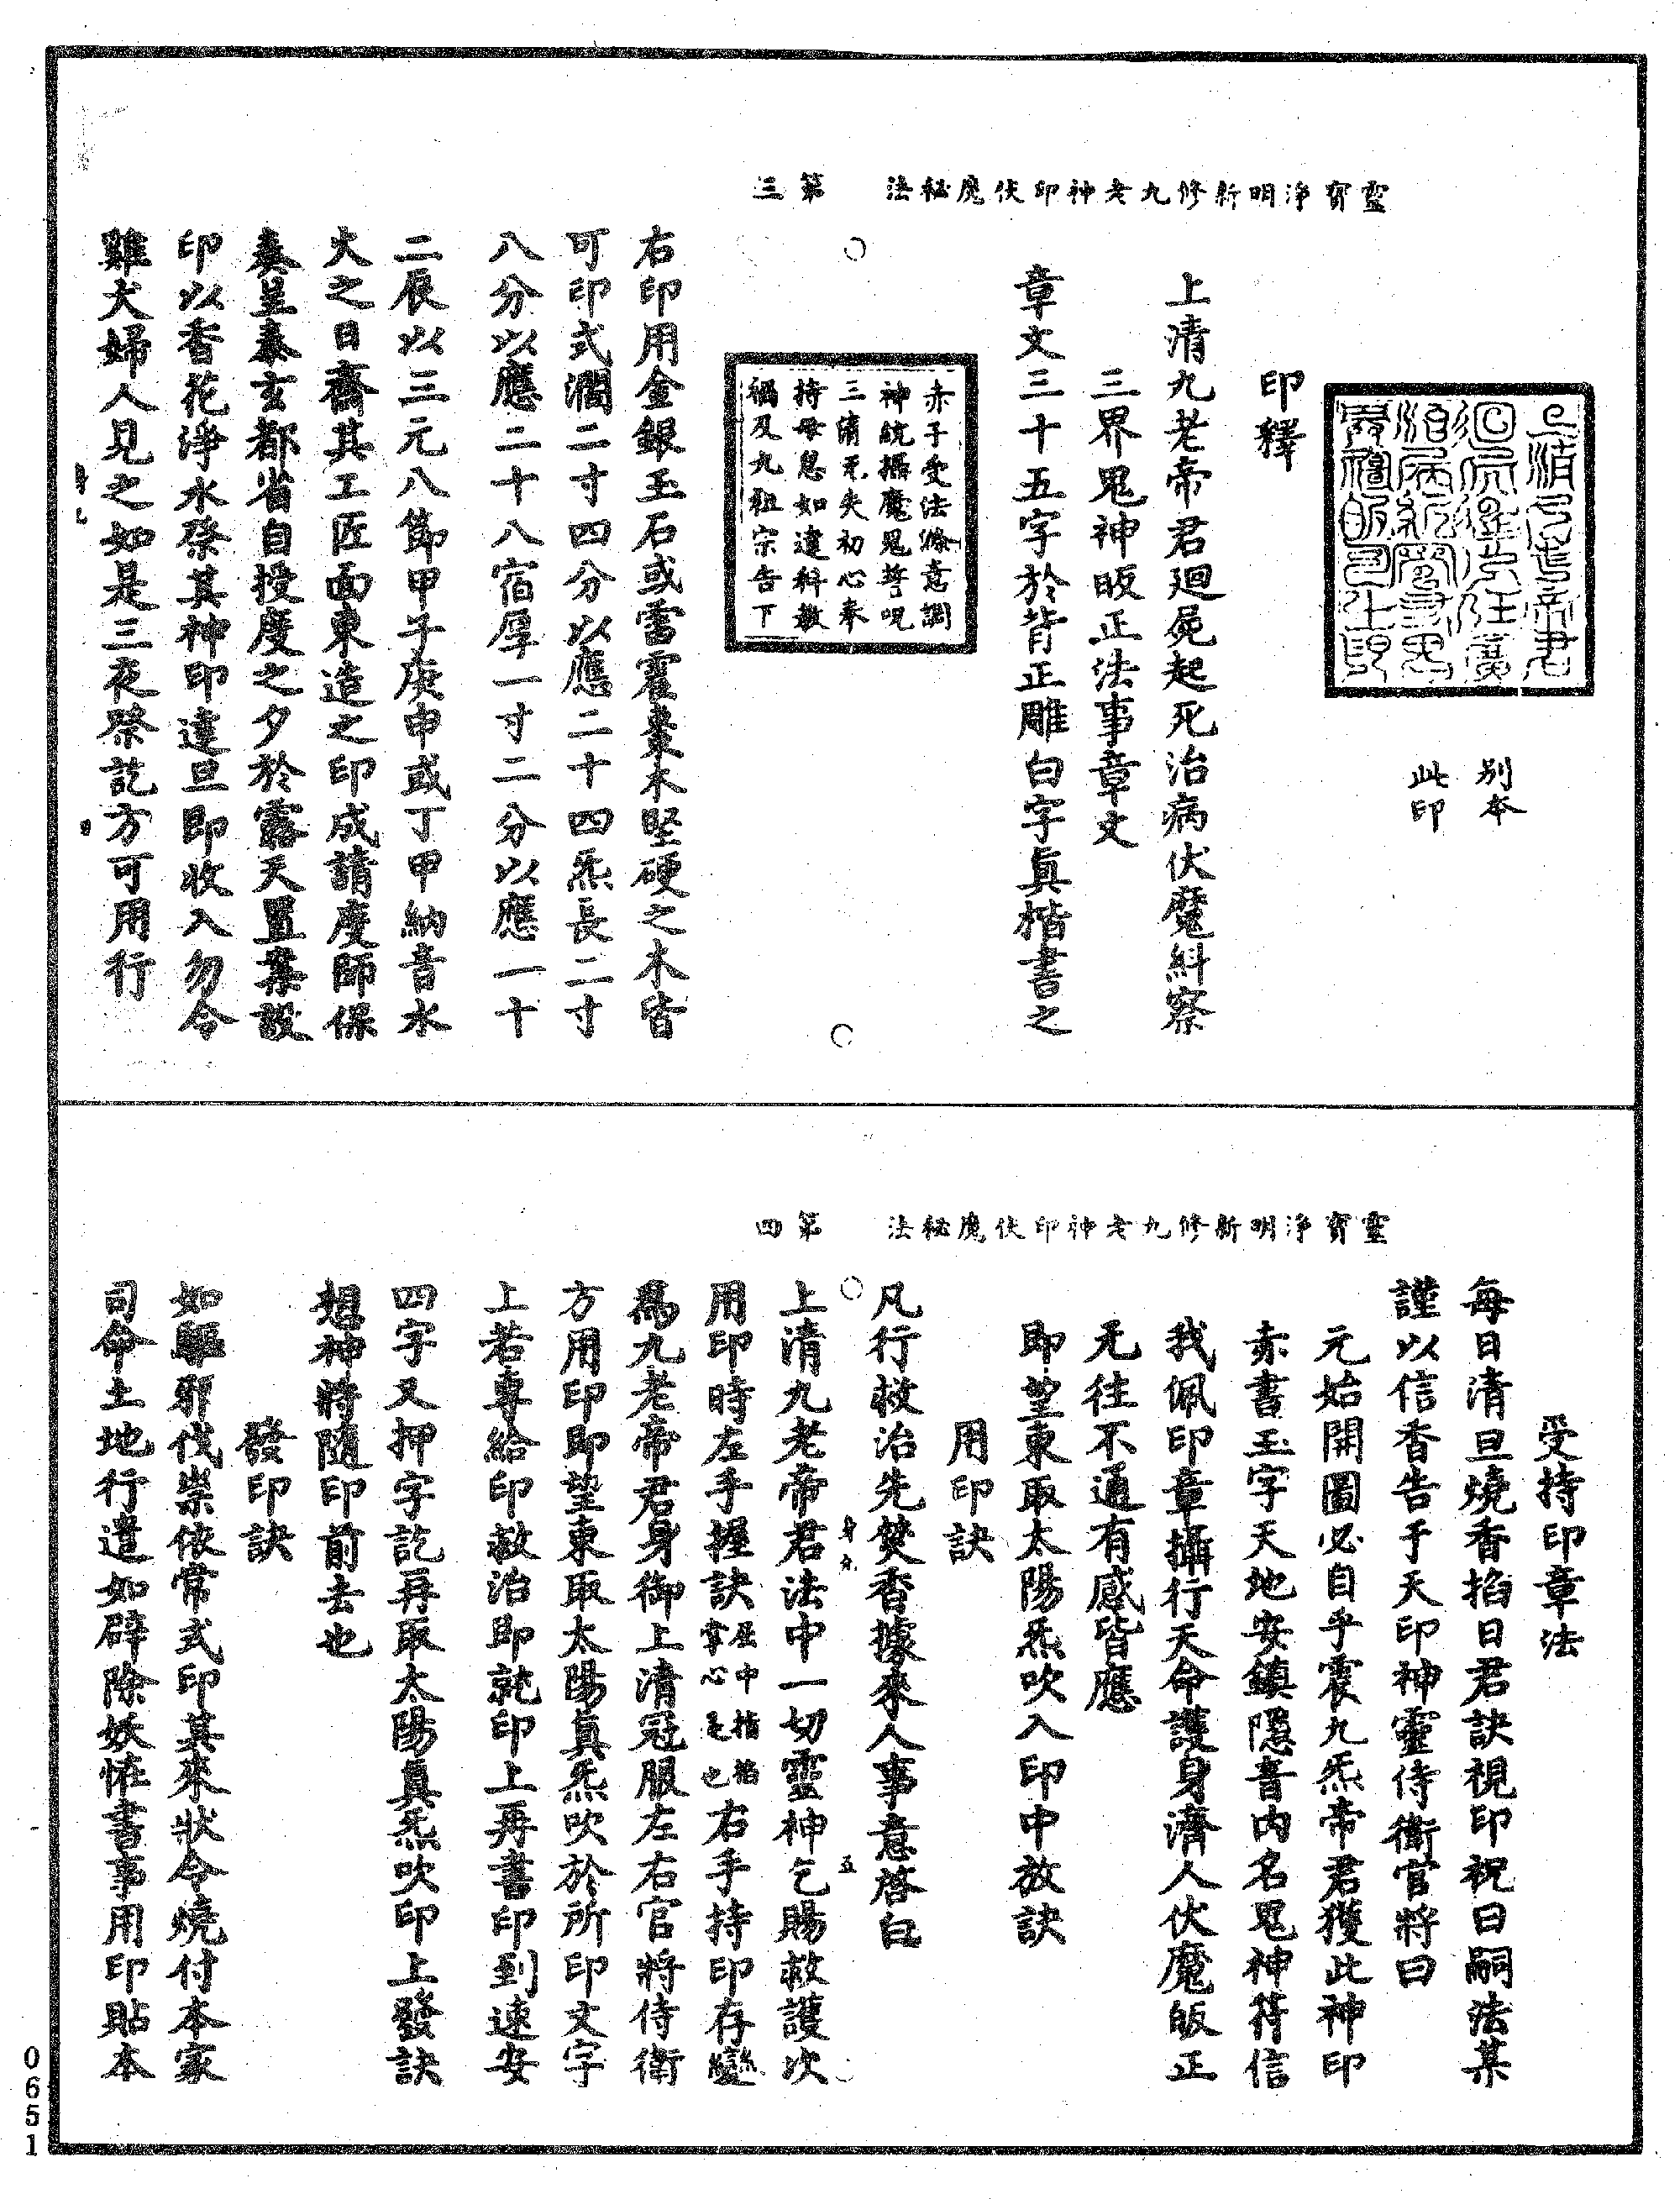 靈寶淨明新修九老神印伏魔秘法　第三
別本
此印
印釋
上清九老帝君廻屍起死治病伏魔糾察
三界鬼神皈正法事章文
章文三十五字於背正雕白字眞楷書之
赤子受法滌意調
神統攝魔鬼誓呪
三清不失初心奉
持毋怠如違科教
禍及九祖宗告下
右印用金銀玉石或雷霍棗木堅硬之木皆
可印式濶二寸四分以應二十四炁長二寸
八分以應二十八宿厚一寸二分以應一十
二辰以三元八節甲子庚申或丁甲納音水
火之日齋其工匠面東造之印成請度師保
奏並奏玄都省自授度之夕於露天置案設
印以香花淨水祭其神印達旦即收入勿令
雞犬婦人見之如是三夜祭訖方可用行
靈寶淨明新修九老神印伏魔秘法　第四
受持印章法
每日清旦燒香掐日君訣視印祝曰嗣法某
謹以信香告于天印神靈侍衛官將曰
元始開圖必自乎震九炁帝君獲此神印
赤書玉字天地安鎮隱音內名鬼神符信
我佩印章攝行天命護身濟人伏魔皈正
无往不通有感皆應
即望東取太陽炁吹入印中放訣
用印訣
凡行救治先焚香據來人事意啓白
上清九老帝君法中一切靈神乞賜救護次
用印時左手握訣屈中指掐掌心是也右手持印存變
爲九老帝君身御上清冠服左右官將侍衛
方用印即望東取太陽眞炁吹於所印文字
上若專給印救治即就印上再書印到速安
四字又押字訖再取太陽眞炁吹印上發訣
想神將隨印前去也
發印訣
如驅邪伐祟依常式印其來狀令燒付本家
司命土地行遣如辟除妖恠書事用印貼本
0651